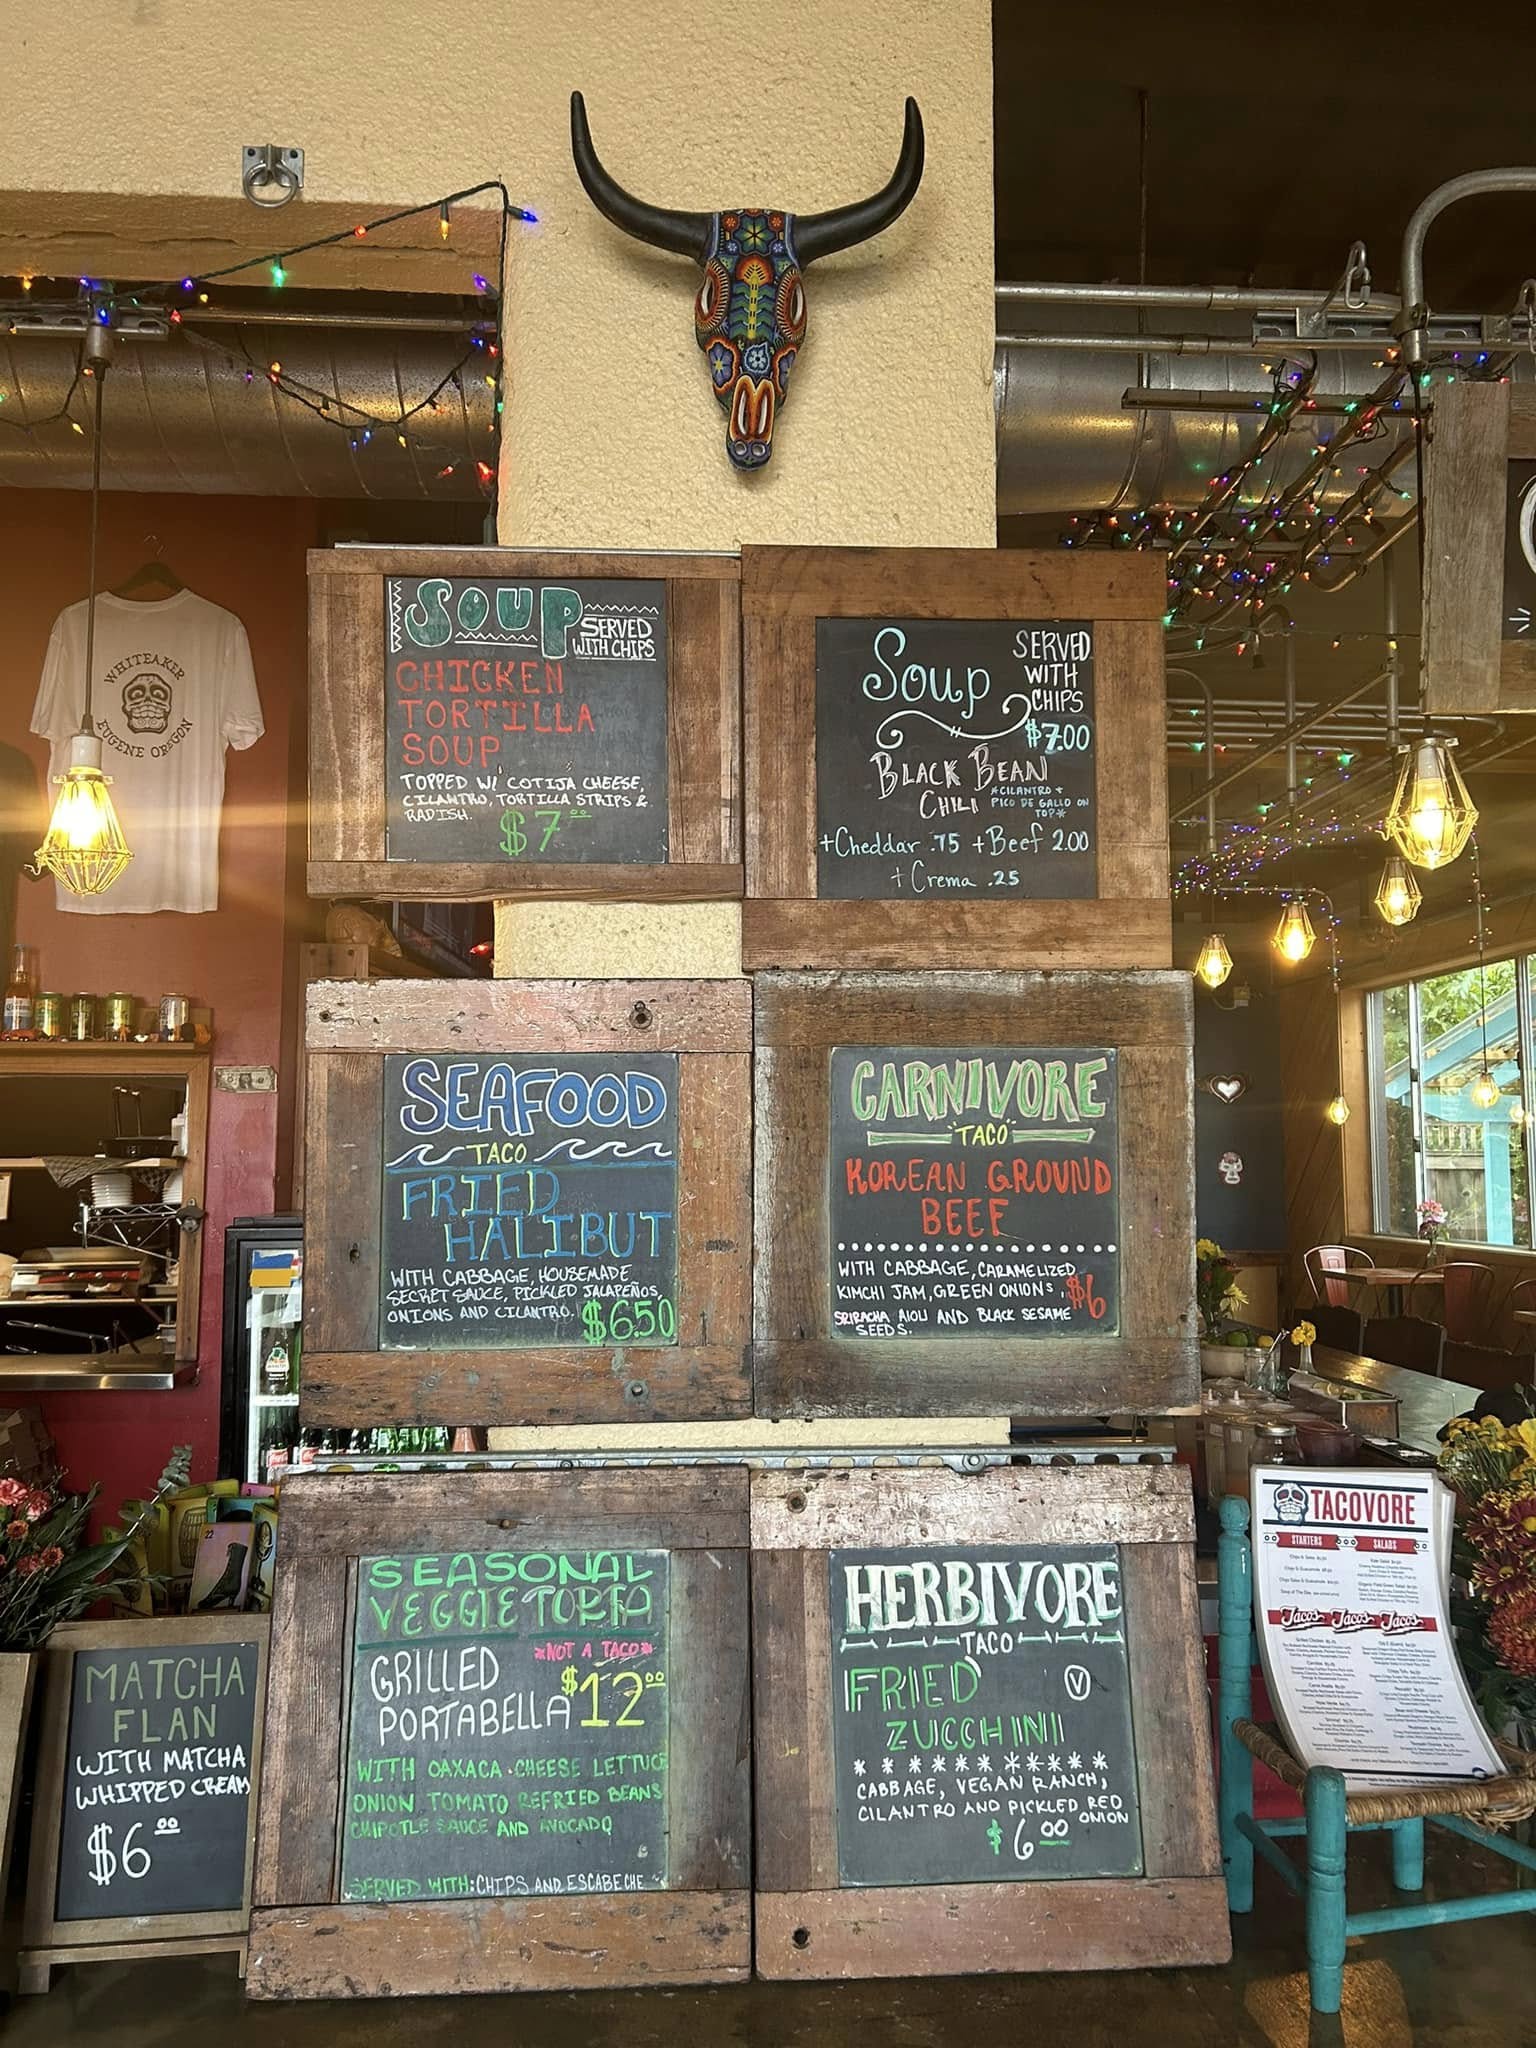 WHITEAKER
EUGENE OREGON
SOUP
SERVED
WITH CHIPS
CHICKEN
TORTILLA
SOUP
TOPPED W/ COTIJA CHEESE,
CILANTRO, TORTILLA STRIPS &
RADISH.
$7.00
Soup
SERVED
WITH
CHIPS
$7.00
BLACK BEAN
CHILI
*CILANTRO +
PICO DE GALLO ON
TOP*
+Cheddar .75 +Beef 2.00
+Crema .25
SEAFOOD
TACO
FRIED
HALIBUT
WITH CABBAGE, HOUSEMADE
SECRET SAUCE, PICKLED JALAPEÑOS,
ONIONS AND CILANTRO.
$6.50
CARNIVORE
"TACO"
KOREAN GROUND
BEEF
WITH CABBAGE, CARAMELIZED
KIMCHI JAM, GREEN ONIONS,
$6
SRIRACHA AIOLI AND BLACK SESAME
SEEDS.
SEASONAL
VEGGIE TORTA
*NOT A TACO*
GRILLED
PORTABELLA
$12.00
WITH OAXACA CHEESE LETTUCE
ONION TOMATO REFRIED BEANS
CHIPOTLE SAUCE AND AVOCADO
SERVED WITH: CHIPS AND ESCABECHE
HERBIVORE
TACO
FRIED
V
ZUCCHINI
* * * * * * * * * *
CABBAGE, VEGAN RANCH,
CILANTRO AND PICKLED RED
ONION
$6.00
MATCHA
FLAN
WITH MATCHA
WHIPPED CREAM
$6.00
22
TACOVORE
STARTERS
SALADS
Tacos Tacos Tacos